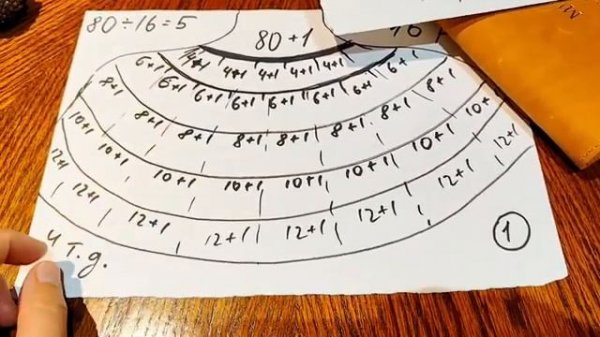 80÷16=5
80+1
4+1 4+1 4+1 4+1 4+1
6+1 6+1 6+1 6+1 6+1 6+1 6+1 6+1
8+1 8+1 8+1 8+1 8+1 8+1 8+1 8+1
10+1 10+1 10+1 10+1 10+1 10+1 10+1 10+
12+1 12+1 12+1 12+1 12+1 12+1 12+1 12+1
и т.д.
1